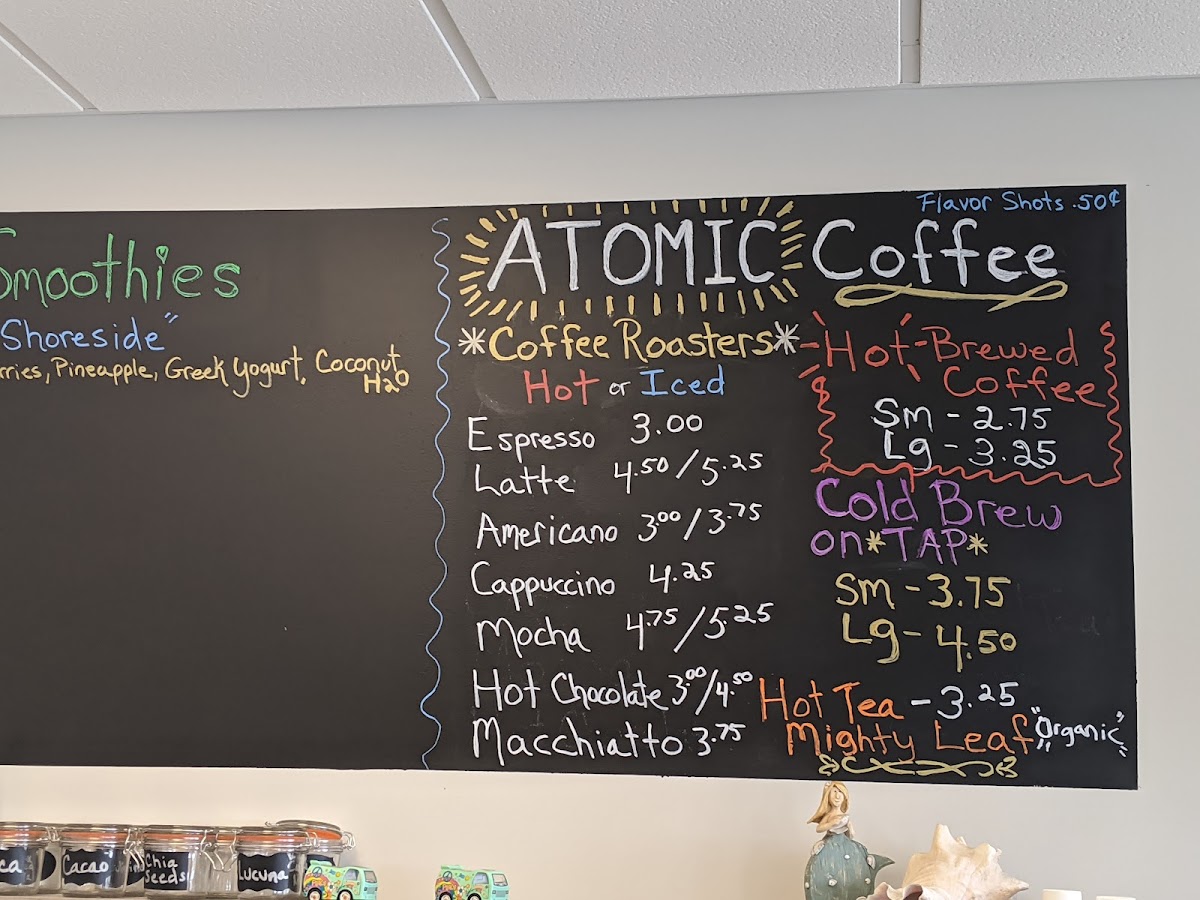 Smoothies
Shoreside"
Pineapple, Greek Yogurt, Coconut
H2O
Flavor Shots .50¢
ATOMIC Coffee
*Coffee Roasters*
Hot or Iced
Espresso 3.00
Latte 4.50/5.25
Americano 3.00/3.75
Cappuccino 4.25
Mocha 4.75/5.25
Hot Chocolate 3.00/4.50
Macchiatto 3.75
Hot-Brewed
Coffee
Sm - 2.75
Lg - 3.25
Cold Brew
on *TAP*
Sm - 3.75
Lg - 4.50
Hot Tea - 3.25
Mighty Leaf "Organic"
Cacao
Chia
Seeds
Lucuma